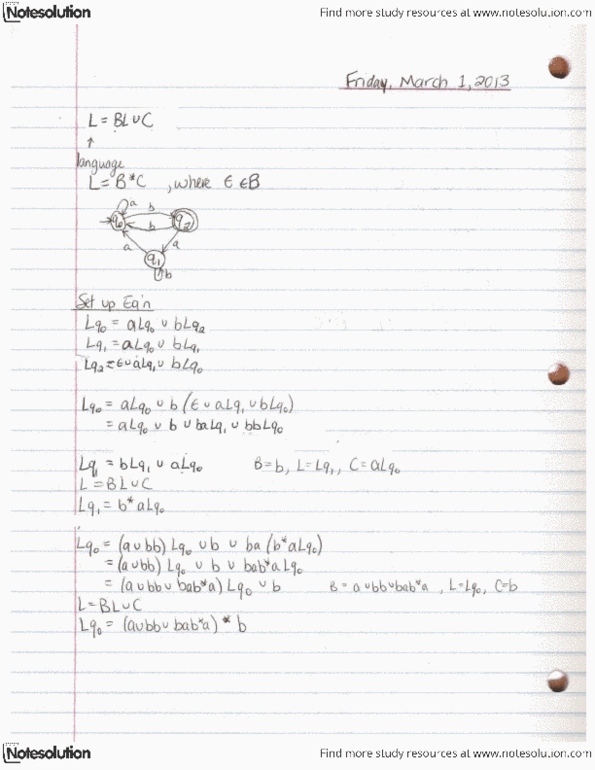 Notesolution
Find more study resources at www.notesolution.com
Friday, March 1, 2013
L = BL ∪ C
↑
language
L = B*C , where ϵ ∈ B
a b
q0 b q2
a a
q1
b
Set up Eq'n
Lq0 = aLq0 ∪ bLq2
Lq1 = aLq0 ∪ bLq1
Lq2 = ϵ ∪ aLq1 ∪ bLq0
Lq0 = aLq0 ∪ b (ϵ ∪ aLq1 ∪ bLq0)
= aLq0 ∪ b ∪ baLq1 ∪ bbLq0
Lq1 = bLq1 ∪ aLq0 B = b, L = Lq1, C = aLq0
L = BL ∪ C
Lq1 = b* aLq0
Lq0 = (a∪bb) Lq0 ∪ b ∪ ba (b*aLq0)
= (a∪bb) Lq0 ∪ b ∪ bab*aLq0
= (a∪bb∪ bab*a) Lq0 ∪ b B = a∪bb∪bab*a , L = Lq0, C=b
L = BL ∪ C
Lq0 = (a∪bb∪ bab*a)* b
Notesolution
Find more study resources at www.notesolution.com